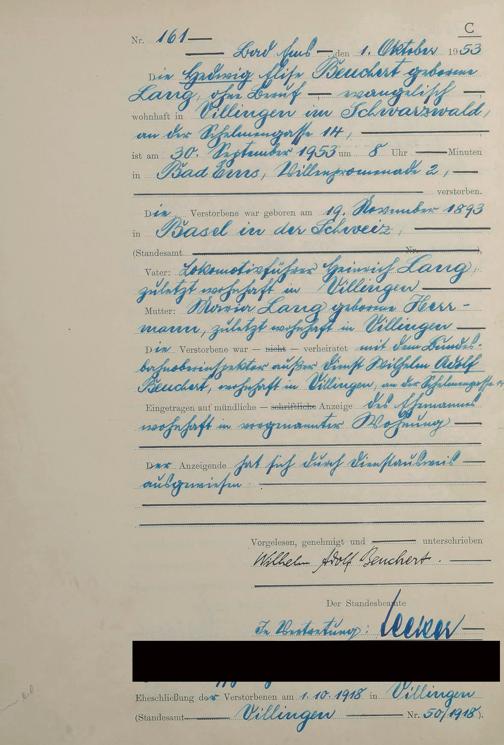 C
Nr. 161
Bad Ems, den 1. Oktober 1953
Die Hedwig Elise Beuchert geborene
Lang, ohne Beruf — evangelisch —,
wohnhaft in Villingen im Schwarzwald,
an der Schelmengasse 14,
ist am 30. September 1953 um 8 Uhr — Minuten
in Bad Ems, Villenpromenade 2,
verstorben.
Die Verstorbene war geboren am 19. November 1893
in Basel in der Schweiz,
(Standesamt — Nr. —),
Vater: Lokomotivführer Heinrich Lang,
zuletzt wohnhaft in Villingen
Mutter: Maria Lang geborene Herr-
mann, zuletzt wohnhaft in Villingen
Die Verstorbene war — nicht — verheiratet mit dem Bundes-
bahnobersinspektor außer Dienst Wilhelm Adolf
Beuchert, wohnhaft in Villingen, an der Schelmengasse
Eingetragen auf mündliche — schriftliche Anzeige des Ehemannes
wohnhaft in vorgenannter Wohnung
Der Anzeigende hat sich durch Dienstausweis
ausgewiesen
Vorgelesen, genehmigt und — unterschrieben
Wilhelm Adolf Beuchert.
Der Standesbeamte
In Vertretung:
Eheschließung der Verstorbenen am 1.10.1918 in Villingen
(Standesamt — Villingen — Nr. 50/1918).